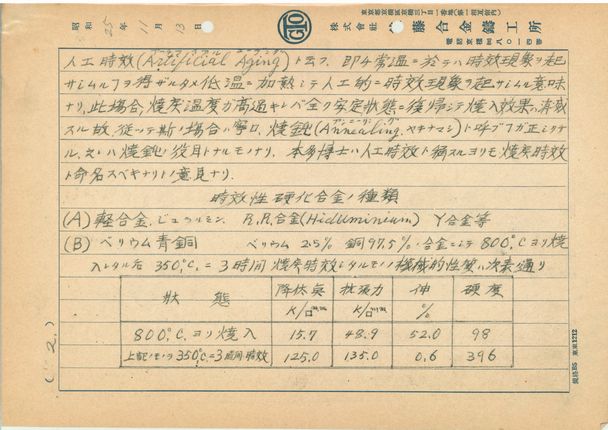 昭和25年11月13日
東京都京橋區京橋三丁目一番地(第一相互館内)
株式會社 藤合金鑄工所
電話京橋(56)八〇一四番
GTO
人工時效(Artificial Aging)ト云フ、即チ常溫ニ於テハ時效現象ヲ起
サシムルヲ得ザルタメ低溫ニ加熱シテ人工的ニ時效現象ヲ起サシム意味
ナリ、此場合、燒戾溫度ガ高過ギレバ全ク安定狀態ニ復帰シテ燒入效果ハ消滅
スル故、從ッテ斯ル場合ハ寧ロ、燒鈍(Annealing、ヤキナマシ)ト呼ブガ正シクナ
ル、又ハ燒鈍ノ役目トナルモノナリ、本多博士ハ人工時效ト稱スルヨリモ燒戾時效
ト命名スベキナリトノ意見ナリ、
時效性硬化合金ノ種類
(A) 軽合金、ジュラルミン、R.R.合金(Hiduminium) Y合金等
(B) ベリウム青銅 ベリウム 2.5% 銅97.5%ノ合金ニシテ 800°C.ヨリ燒
入レタル后 350°C.ニ3時間 燒戾時效シタルモノノ機械的性質ハ次表ノ通リ
狀態 降伏点 K/□mm 抗張力 K/□mm 伸 % 硬度
800°C.ヨリ燒入 15.7 48.9 52.0 98
上記ノモノヲ350°C.ニ3時間時效 125.0 135.0 0.6 396
(2.)
規格B5 東京1212